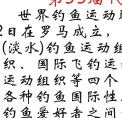 世界钓鱼运动
2日在罗马成立，
(淡水)钓鱼运动组
织、国际飞钓运
运动组织等四个
各种钓鱼国际性
钓鱼爱好者之间